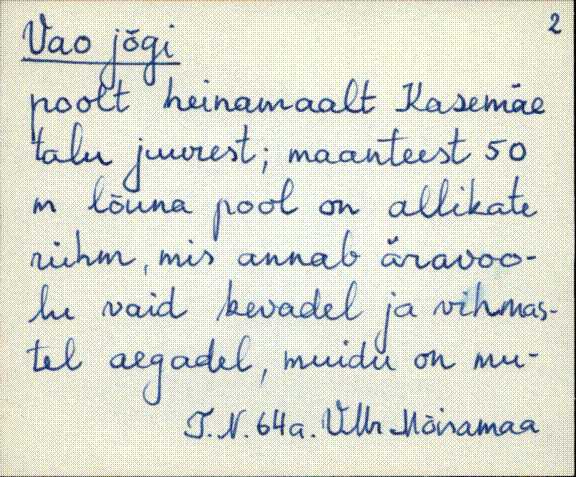 2
Vao jõgi
poolt heinamaalt Kasemäe
talu juurest; maanteest 50
m lõuna pool on allikate
rühm, mis annab äravoo-
lu vaid kevadel ja vihmas-
tel aegadel, muidu on mu-
T. N. 64a. Ülo Mõisamaa